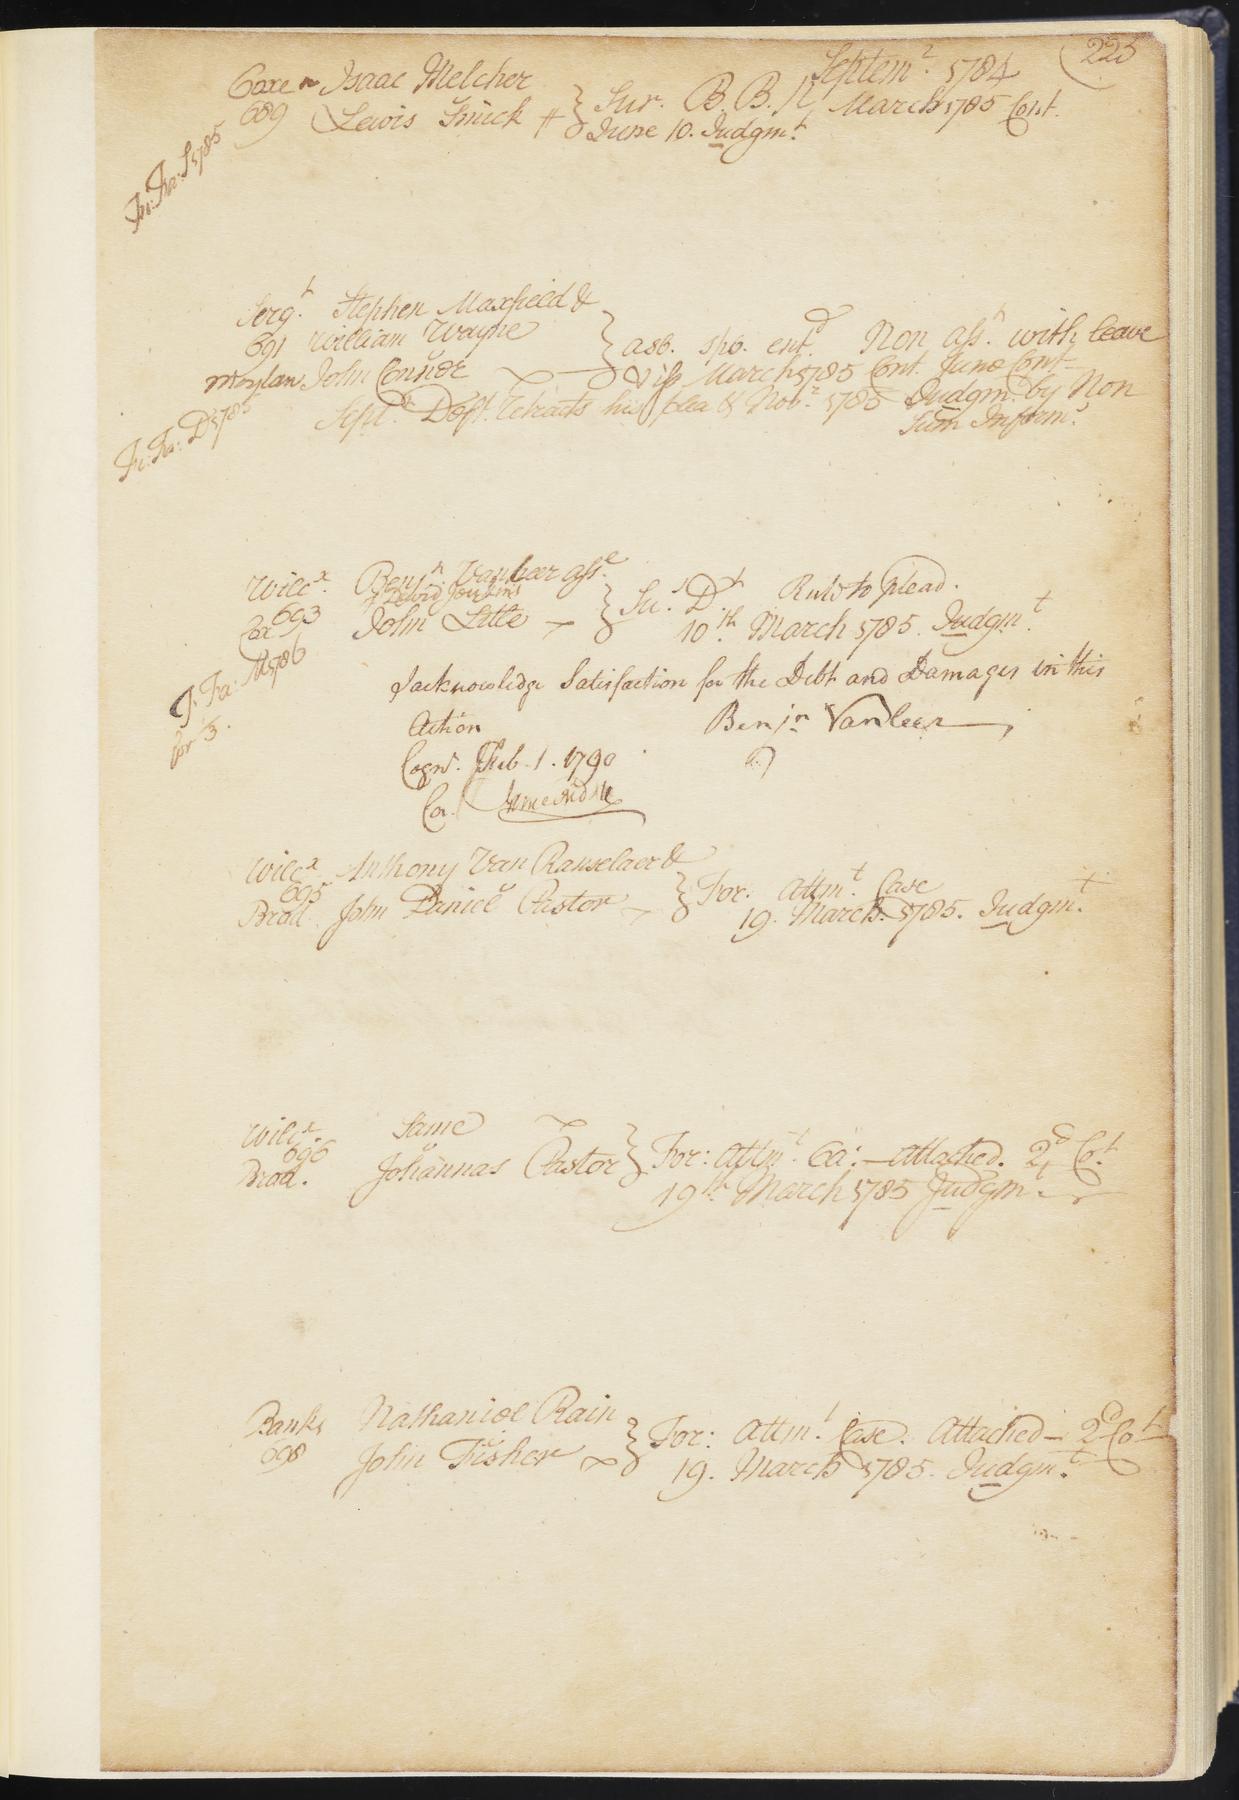 Septemr. 1784 (225
Coxe Isaac Melcher
689 Lewis Snick } Sur. B. B. R March 1785 Cont.
June 10. Judgmt.
Fi: Fa: S 1785
Sergt. Stephen Maxfield &
691 William Wayne
Moylan John Connor } ass. spo. entd. Non assn. with leave
&c iss March 1785 Cont. June Cont.
Septr. Deft. retracts his plea & Novr. 1785 Judgmt. by Non
Sum Informs.
Fi: Fa: D 1785
Wilcx. Benjn. Vanleer asse.
of Lewis Jenkins
693
Cox John Little } Su. Dt. Rule to plead.
10th. March 1785. Judgmt.
F: Fa: M 1786
for 3.
I acknowlidge Satisfaction for the Debt and Damages in this
Action Benjn Vanleer
Cogn. Feb. 1. 1790
Co.
Wilcx Anthony Van Ranselaer &
695
Brad. John Daniel Pastor } For. Attmt. Case
19. March. 1785. Judgmt.
Wilcx Same
696
Brad. Johannas Pastor } For: Attmt. Ca: — Attached. 2d Cot
19th March 1785 Judgmt.
Banks Nathaniel Rain
698 John Fisher } For: Attmt. Case. Attached — 2d Cot
19. March 1785. Judgmt.